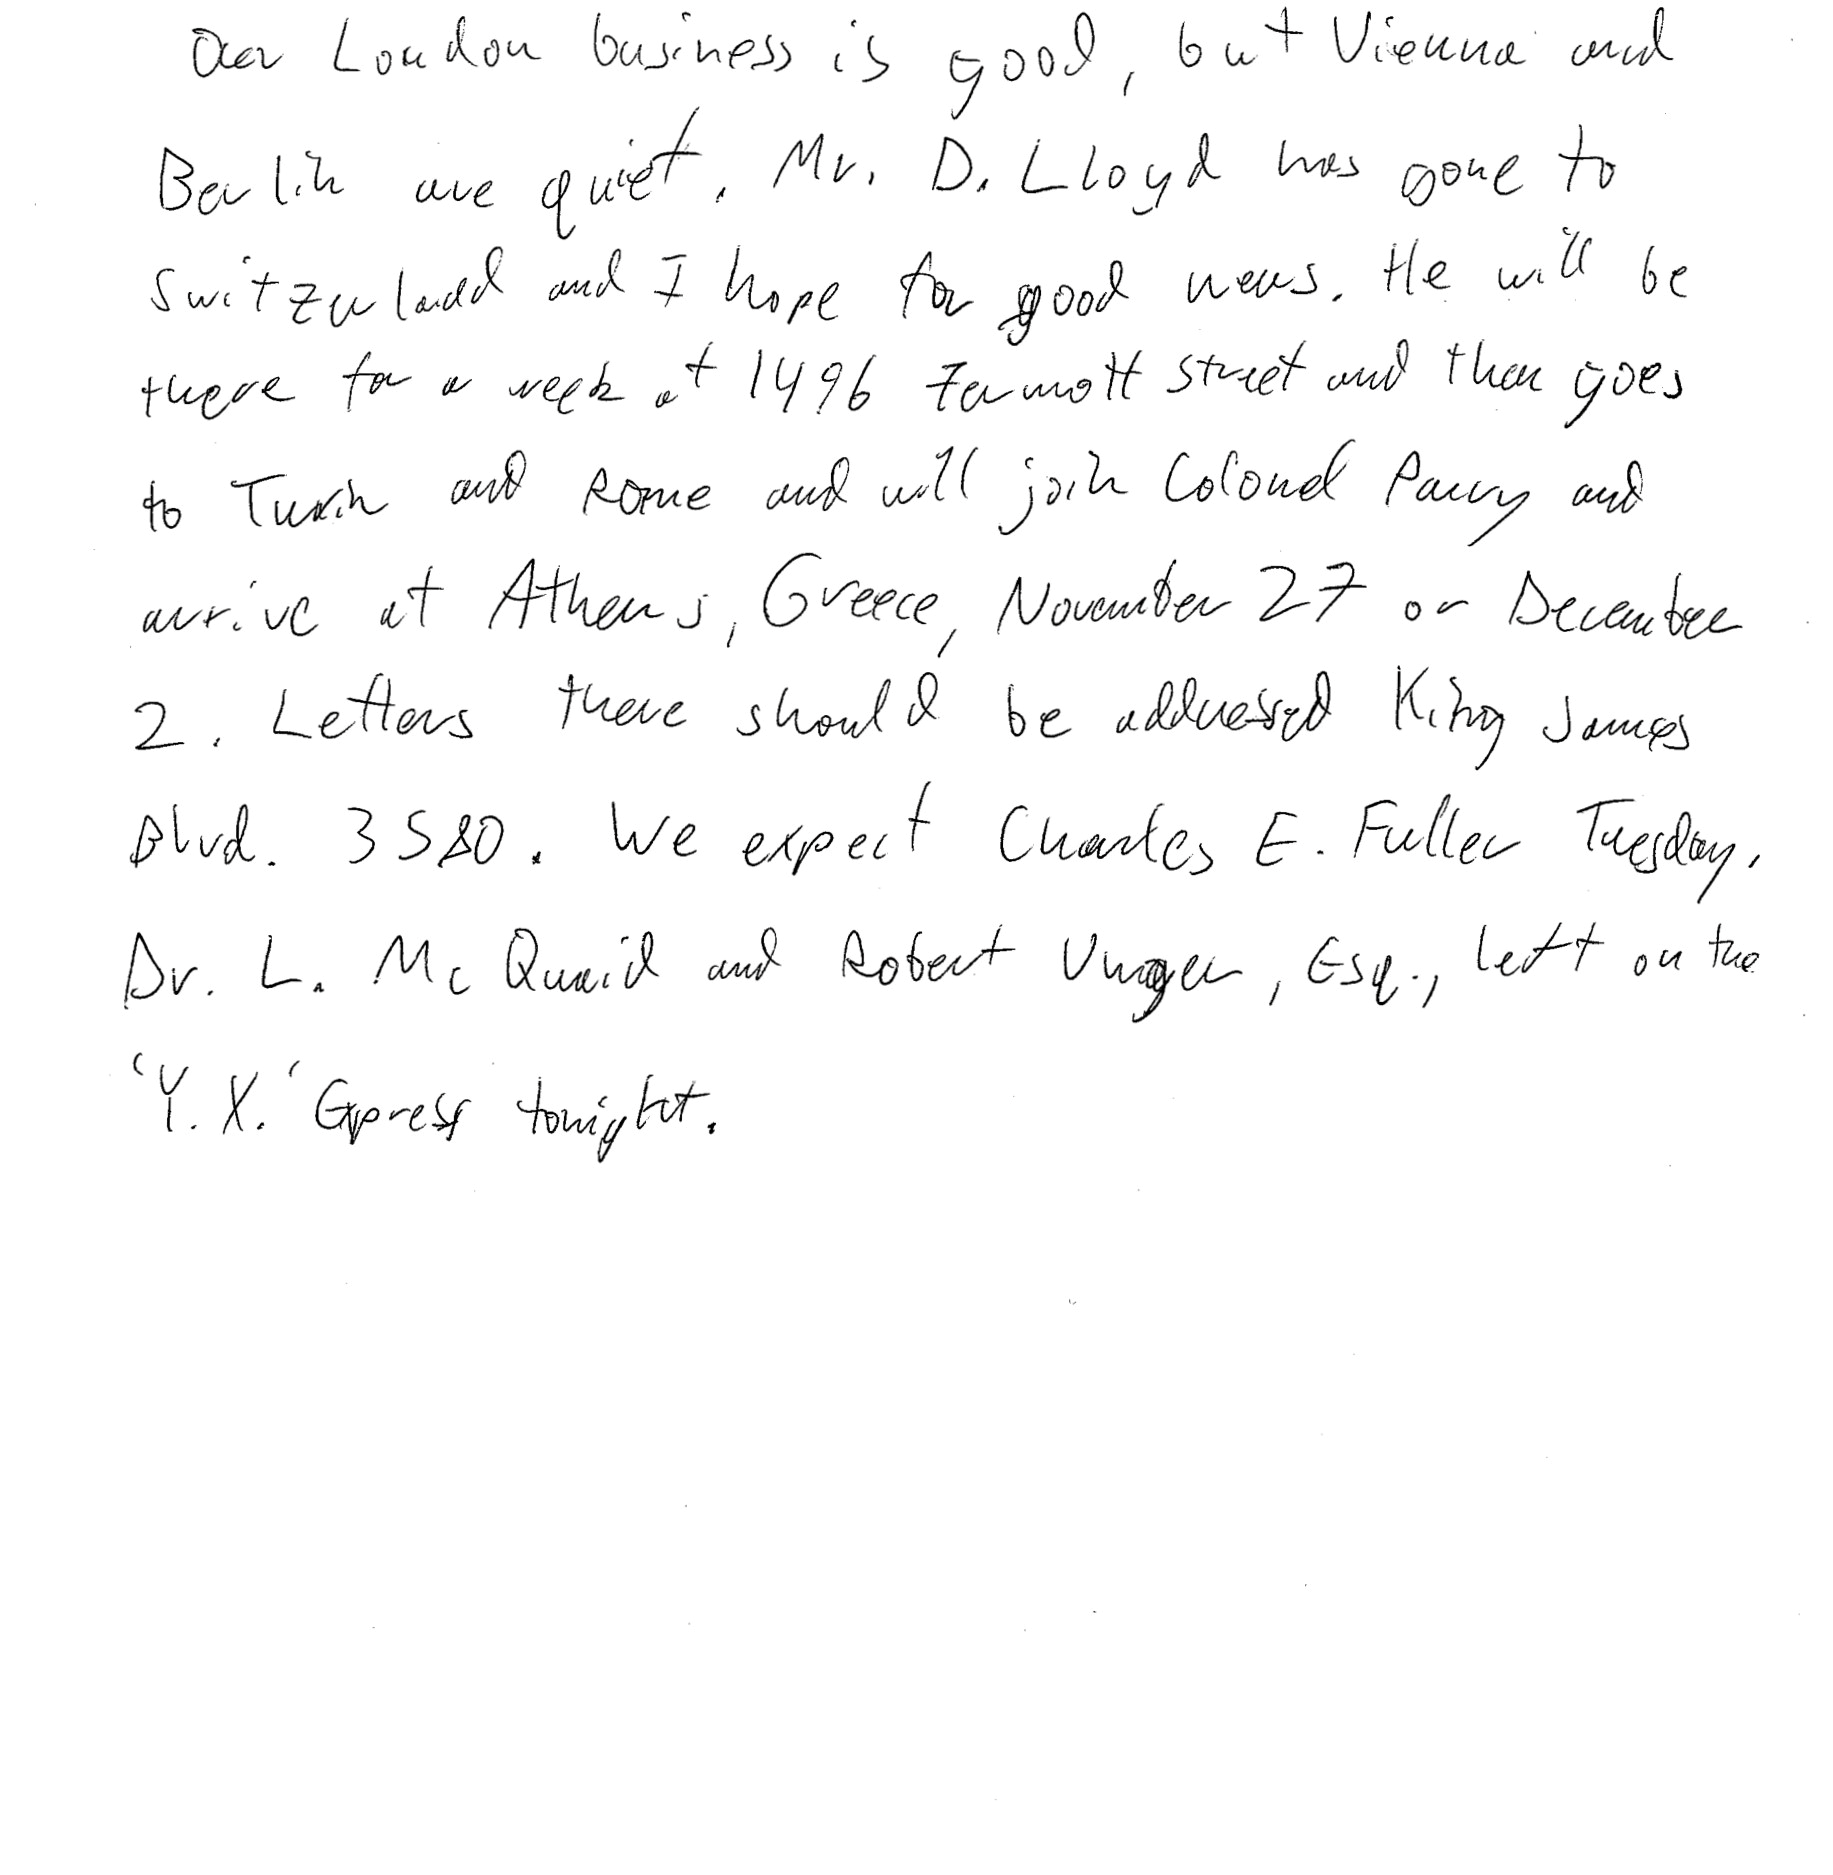 Our London business is good, but Vienna and
Berlin are quiet. Mr. D. Lloyd has gone to
Switzerland and I hope for good news. He will be
there for a week at 1496 Zermott Street and then goes
to Turin and Rome and will join Colonel Parry and
arrive at Athens, Greece, November 27 or December
2. Letters there should be addressed King James
Blvd. 3580. We expect Charles E. Fuller Tuesday.
Dr. L. Mc Quaid and Robert Unger, Esq., left on the
'Y. X.' Express tonight.